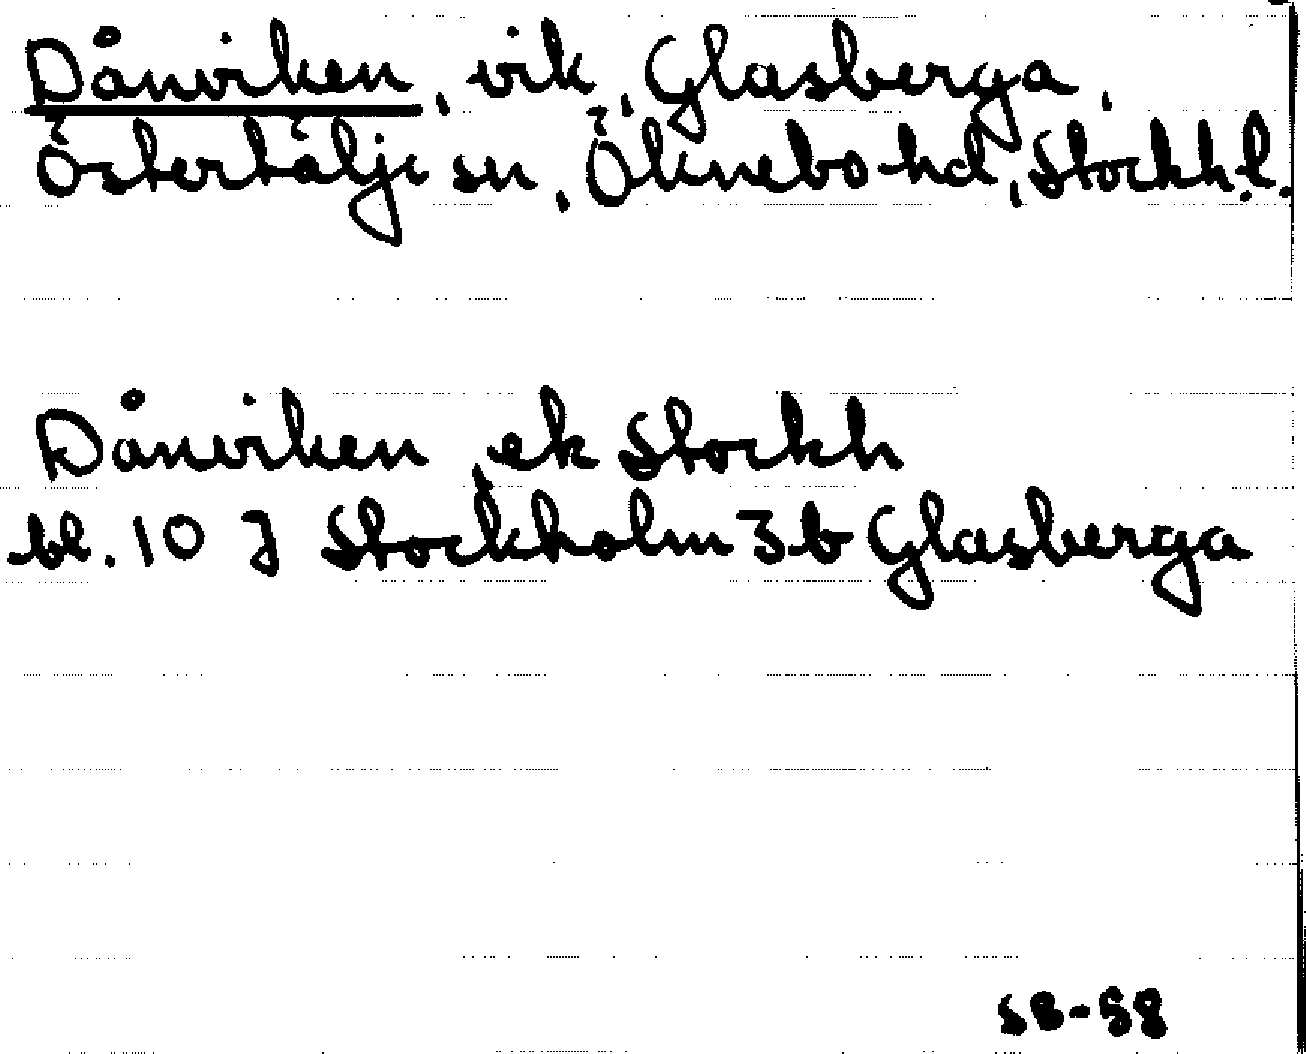 Dånviken, vik, Glasberga,
Östertälje sn, Öknebo hd, Stockh. l.
Dånviken, ek Stockh
bl. 10 J Stockholm 3b Glasberga
S8-58